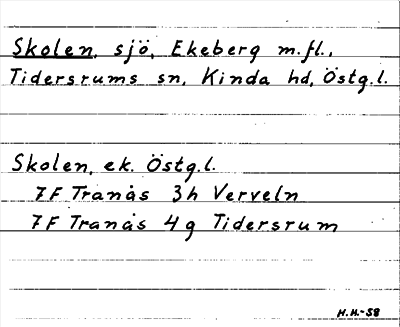 Skolen, sjö, Ekeberg m.fl.,
Tidersrums sn, Kinda hd, Östg.l.
Skolen, ek. Östg.l.
7F Tranås 3h Verveln
7F Tranås 4g Tidersrum
H.H.-58